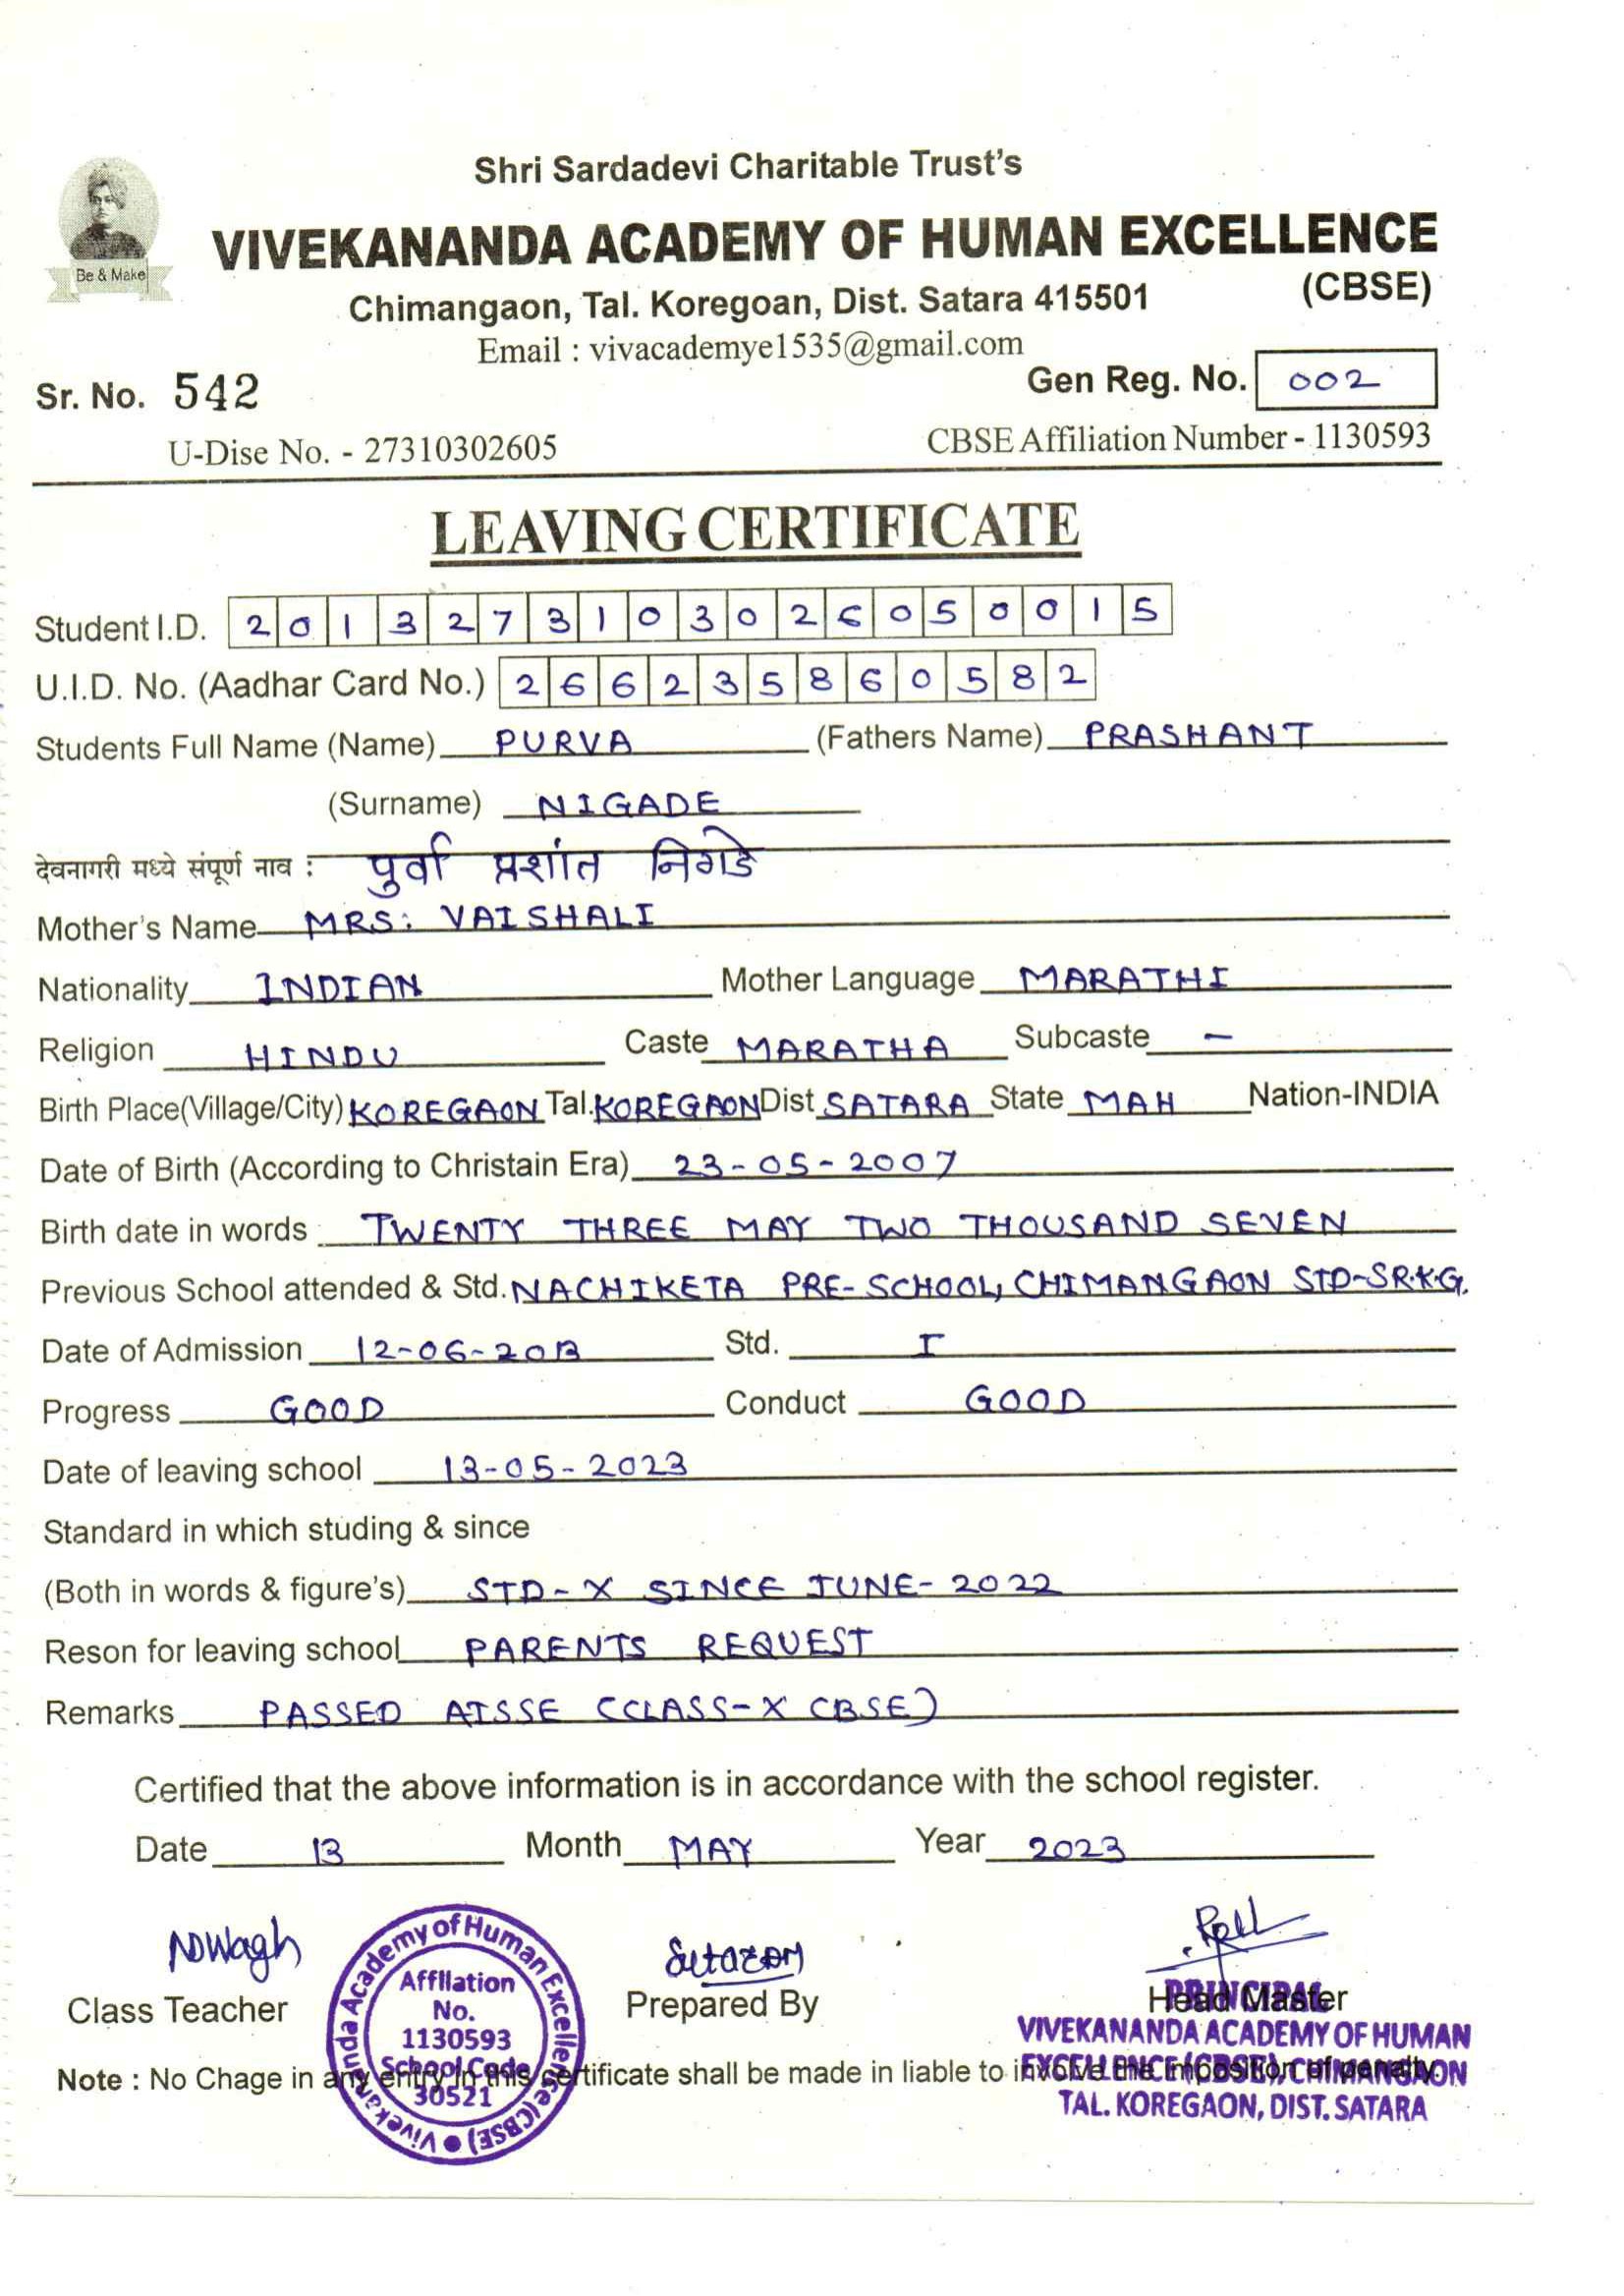 Shri Sardadevi Charitable Trust's
Be & Make
VIVEKANANDA ACADEMY OF HUMAN EXCELLENCE
(CBSE)
Chimangaon, Tal. Koregoan, Dist. Satara 415501
Email : vivacademye1535@gmail.com
Sr. No. 542 Gen Reg. No. 002
U-Dise No. - 27310302605 CBSE Affiliation Number - 1130593
LEAVING CERTIFICATE
Student I.D. 2013273103026050015
U.I.D. No. (Aadhar Card No.) 266235860582
Students Full Name (Name) PURVA (Fathers Name) PRASHANT
(Surname) NIGADE
देवनागरी मध्ये संपूर्ण नाव : पुर्वा प्रशांत निगडे
Mother's Name MRS. VAISHALI
Nationality INDIAN Mother Language MARATHI
Religion HINDU Caste MARATHA Subcaste –
Birth Place(Village/City) KOREGAON Tal. KOREGAON Dist SATARA State MAH Nation-INDIA
Date of Birth (According to Christain Era) 23-05-2007
Birth date in words TWENTY THREE MAY TWO THOUSAND SEVEN
Previous School attended & Std. NACHIKETA PRE-SCHOOL, CHIMANGAON STD-SR.K.G.
Date of Admission 12-06-2013 Std. I
Progress GOOD Conduct GOOD
Date of leaving school 13-05-2023
Standard in which studing & since
(Both in words & figure's) STD-X SINCE JUNE-2022
Reson for leaving school PARENTS REQUEST
Remarks PASSED AISSE (CLASS-X CBSE)
Certified that the above information is in accordance with the school register.
Date 13 Month MAY Year 2023
NDWagh
Class Teacher Prepared By Head Master
Vivekananda Academy of Human Excellence (CBSE)
Affilation
No.
1130593
School Code
30521
PRINCIPAL
VIVEKANANDA ACADEMY OF HUMAN
EXCELLENCE (CBSE), CHIMANGAON
TAL. KOREGAON, DIST. SATARA
Note : No Chage in any entry in this certificate shall be made in liable to involve the imposition of penalty.